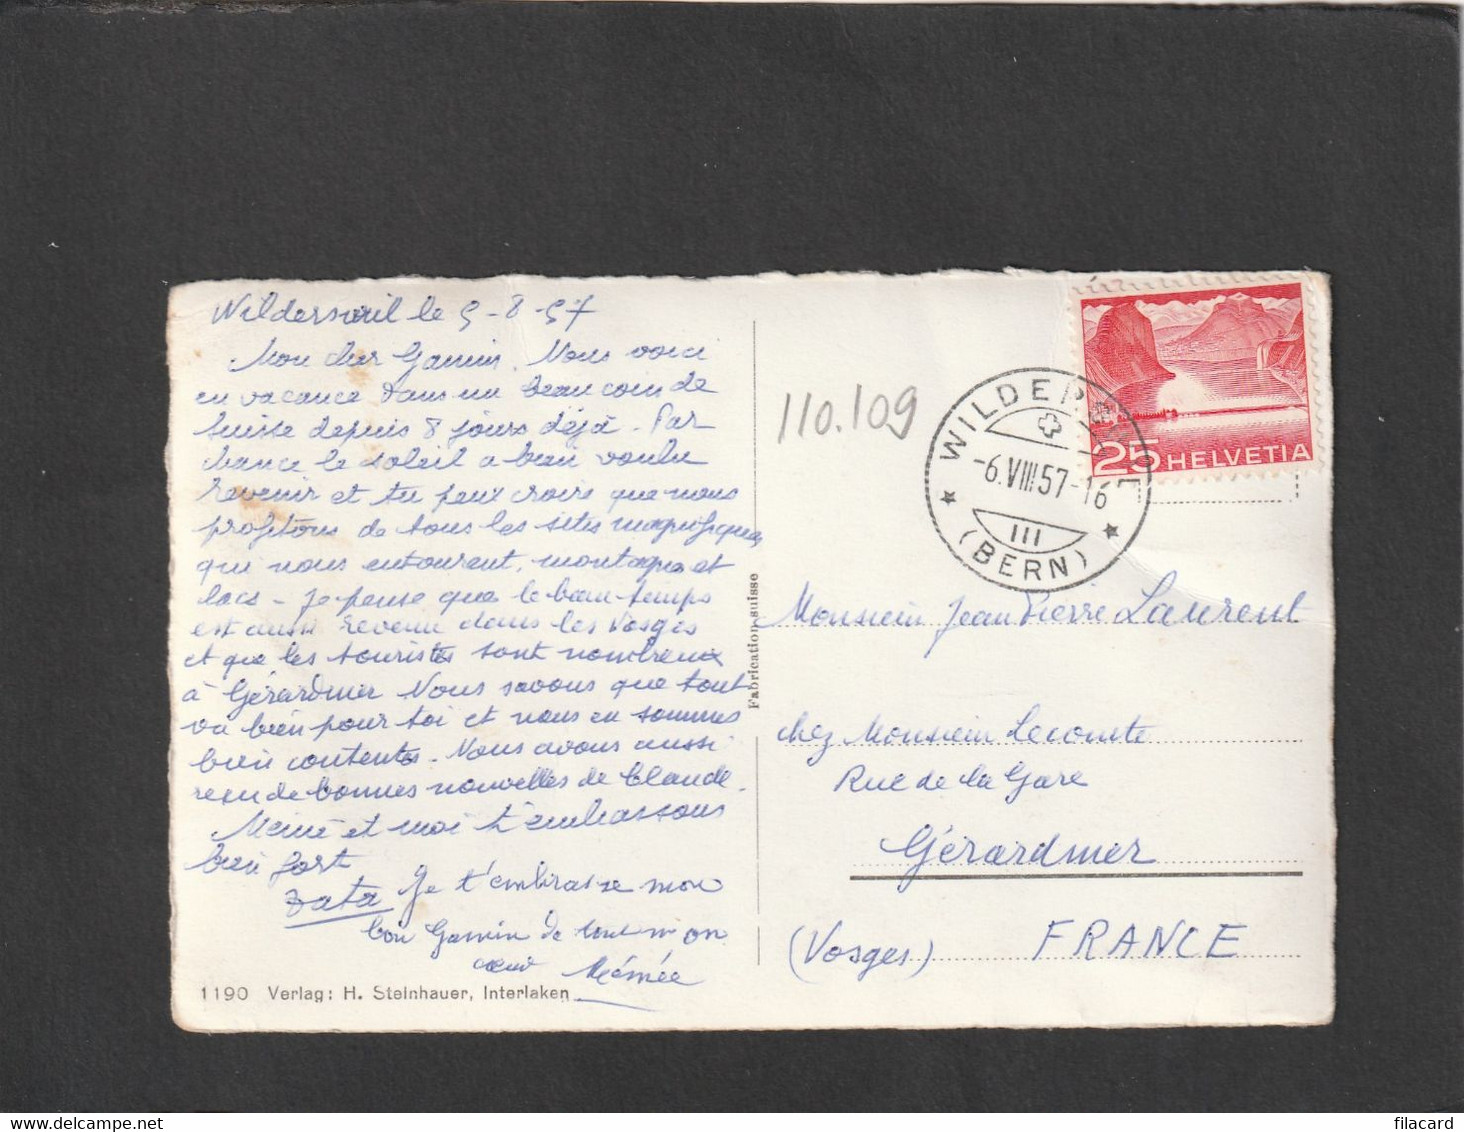 Wilderswil le 5-8-57
Mon cher Gamin. Nous voici
en vacance dans un beau coin de
Suisse depuis 8 jours déjà. Par
chance le soleil a bien voulu
revenir et tu peux croire que nous
profitons de tous les sites magnifiques
qui nous entourent, montagnes et
lacs - Je pense que le beau temps
est aussi revenu dans les Vosges
et que les touristes sont nombreux
à Gérardmer Nous savons que tout
va bien pour toi et nous en sommes
bien contents. Nous avons aussi
reçu de bonnes nouvelles de Claude.
Mémé et moi t'embrassons
bien fort
Tata Je t'embrasse mon
bon Gamin de tout mon
cœur Mémée
1190 Verlag: H. Steinhauer, Interlaken
Fabrication suisse
110.109
WILDERSWIL
-6.VIII.57-16
III
(BERN)
25 HELVETIA
Monsieur Jean Pierre Laurent
chez Monsieur Lecomte
Rue de la Gare
Gérardmer
(Vosges) FRANCE
filacard.com